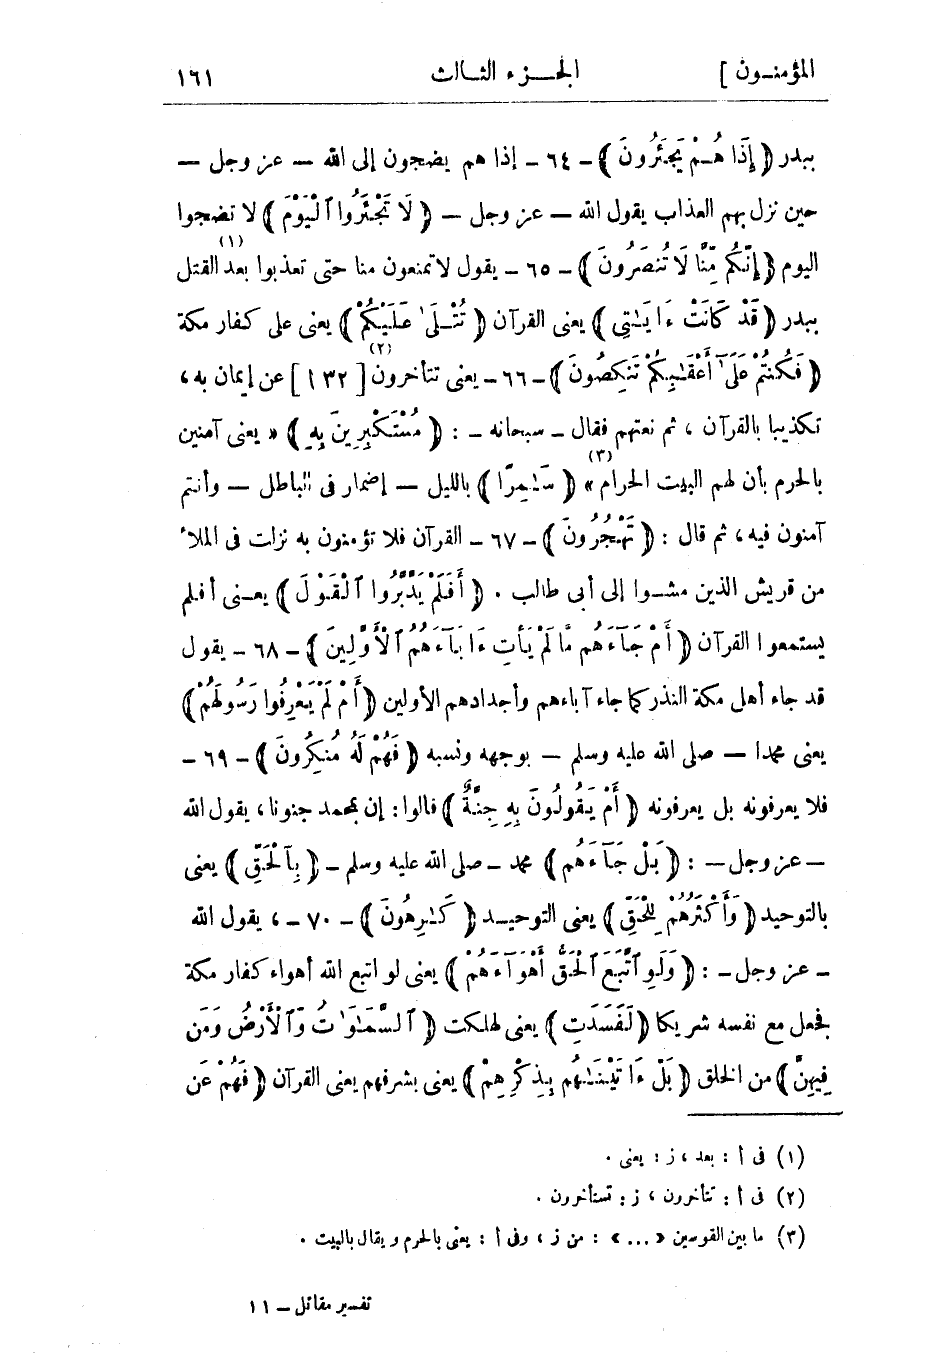 المؤمنـون ] الجـــزء الثـالث ١٦١
ببدر ﴿ إِذَا هُـمْ يَجْئَرُونَ ﴾ - ٦٤ - إذا هم يضجون إلى الله — عز وجل —
حين نزل بهم العذاب يقول الله — عز وجل — ﴿ لَا تَجْئَرُوا ٱلْيَوْمَ ﴾ لا تضجوا
اليوم ﴿ إِنَّكُم مِّنَّا لَا تُنصَرُونَ ﴾ - ٦٥ - يقول لا تمنعون منا حتى تعذبوا بعد (١) القتل
ببدر ﴿ قَدْ كَانَتْ ءَايَـٰتِى ﴾ يعنى القرآن ﴿ تُتْـلَىٰ عَلَيْكُمْ ﴾ يعنى على كفار مكة
﴿ فَكُنتُمْ عَلَىٰٓ أَعْقَـٰبِكُمْ تَنكِصُونَ ﴾ - ٦٦ - يعنى تتأخرون (٢) [ ٣٢ ا ] عن إيمان به ،
تكذيبا بالقرآن ، ثم نعتهم فقال - سبحانه - : ﴿ مُسْتَكْبِرِينَ بِهِ ﴾ « يعنى آمنين
بالحرم بأن لهم البيت الحرام » (٣) ﴿ سَـٰمِرًا ﴾ بالليل — إضمار فى الباطل — وأنتم
آمنون فيه ، ثم قال : ﴿ تَهْجُرُونَ ﴾ - ٦٧ - القرآن فلا تؤمنون به نزلت فى الملأ
من قريش الذين مشـوا إلى أبى طالب . ﴿ أَفَلَمْ يَدَّبَّرُوا ٱلْقَوْلَ ﴾ يعـنى أفلم
يستمعوا القرآن ﴿ أَمْ جَآءَهُم مَّا لَمْ يَأْتِ ءَابَآءَهُمُ ٱلْأَوَّلِينَ ﴾ - ٦٨ - يقول
قد جاء أهل مكة النذر كما جاء آباءهم وأجدادهم الأولين ﴿ أَمْ لَمْ يَعْرِفُوا رَسُولَهُمْ ﴾
يعنى محمدا — صلى الله عليه وسلم — بوجهه ونسبه ﴿ فَهُمْ لَهُ مُنكِرُونَ ﴾ - ٦٩ -
فلا يعرفونه بل يعرفونه ﴿ أَمْ يَقُولُونَ بِهِ جِنَّةٌ ﴾ قالوا : إن بمحمد جنونا ، يقول الله
— عز وجل — : ﴿ بَلْ جَآءَهُم ﴾ محمد - صلى الله عليه وسلم - ﴿ بِٱلْحَقِّ ﴾ يعنى
بالتوحيد ﴿ وَأَكْثَرُهُمْ لِلْحَقِّ ﴾ يعنى التوحيــد ﴿ كَـٰرِهُونَ ﴾ - ٧٠ - ، يقول الله
- عز وجل - : ﴿ وَلَوِ ٱتَّبَعَ ٱلْحَقُّ أَهْوَآءَهُمْ ﴾ يعنى لو اتبع الله أهواء كفار مكة
فجعل مع نفسه شريكا ﴿ لَفَسَدَتِ ﴾ يعنى لهلكت ﴿ ٱلسَّمَـٰوَٰتُ وَٱلْأَرْضُ وَمَن
فِيهِنَّ ﴾ من الخلق ﴿ بَلْ ءَاتَيْنَـٰهُم بِذِكْرِهِمْ ﴾ يعنى بشرفهم يعنى القرآن ﴿ فَهُمْ عَن
(١) فى أ : بعد ، ز : يعنى .
(٢) فى أ : تتأخرون ، ز : تستأخرون .
(٣) ما بين القوسين « ... » : من ز ، وفى أ : يعنى بالحرم ويقال بالبيت .
تفسير مقاتل - ١١